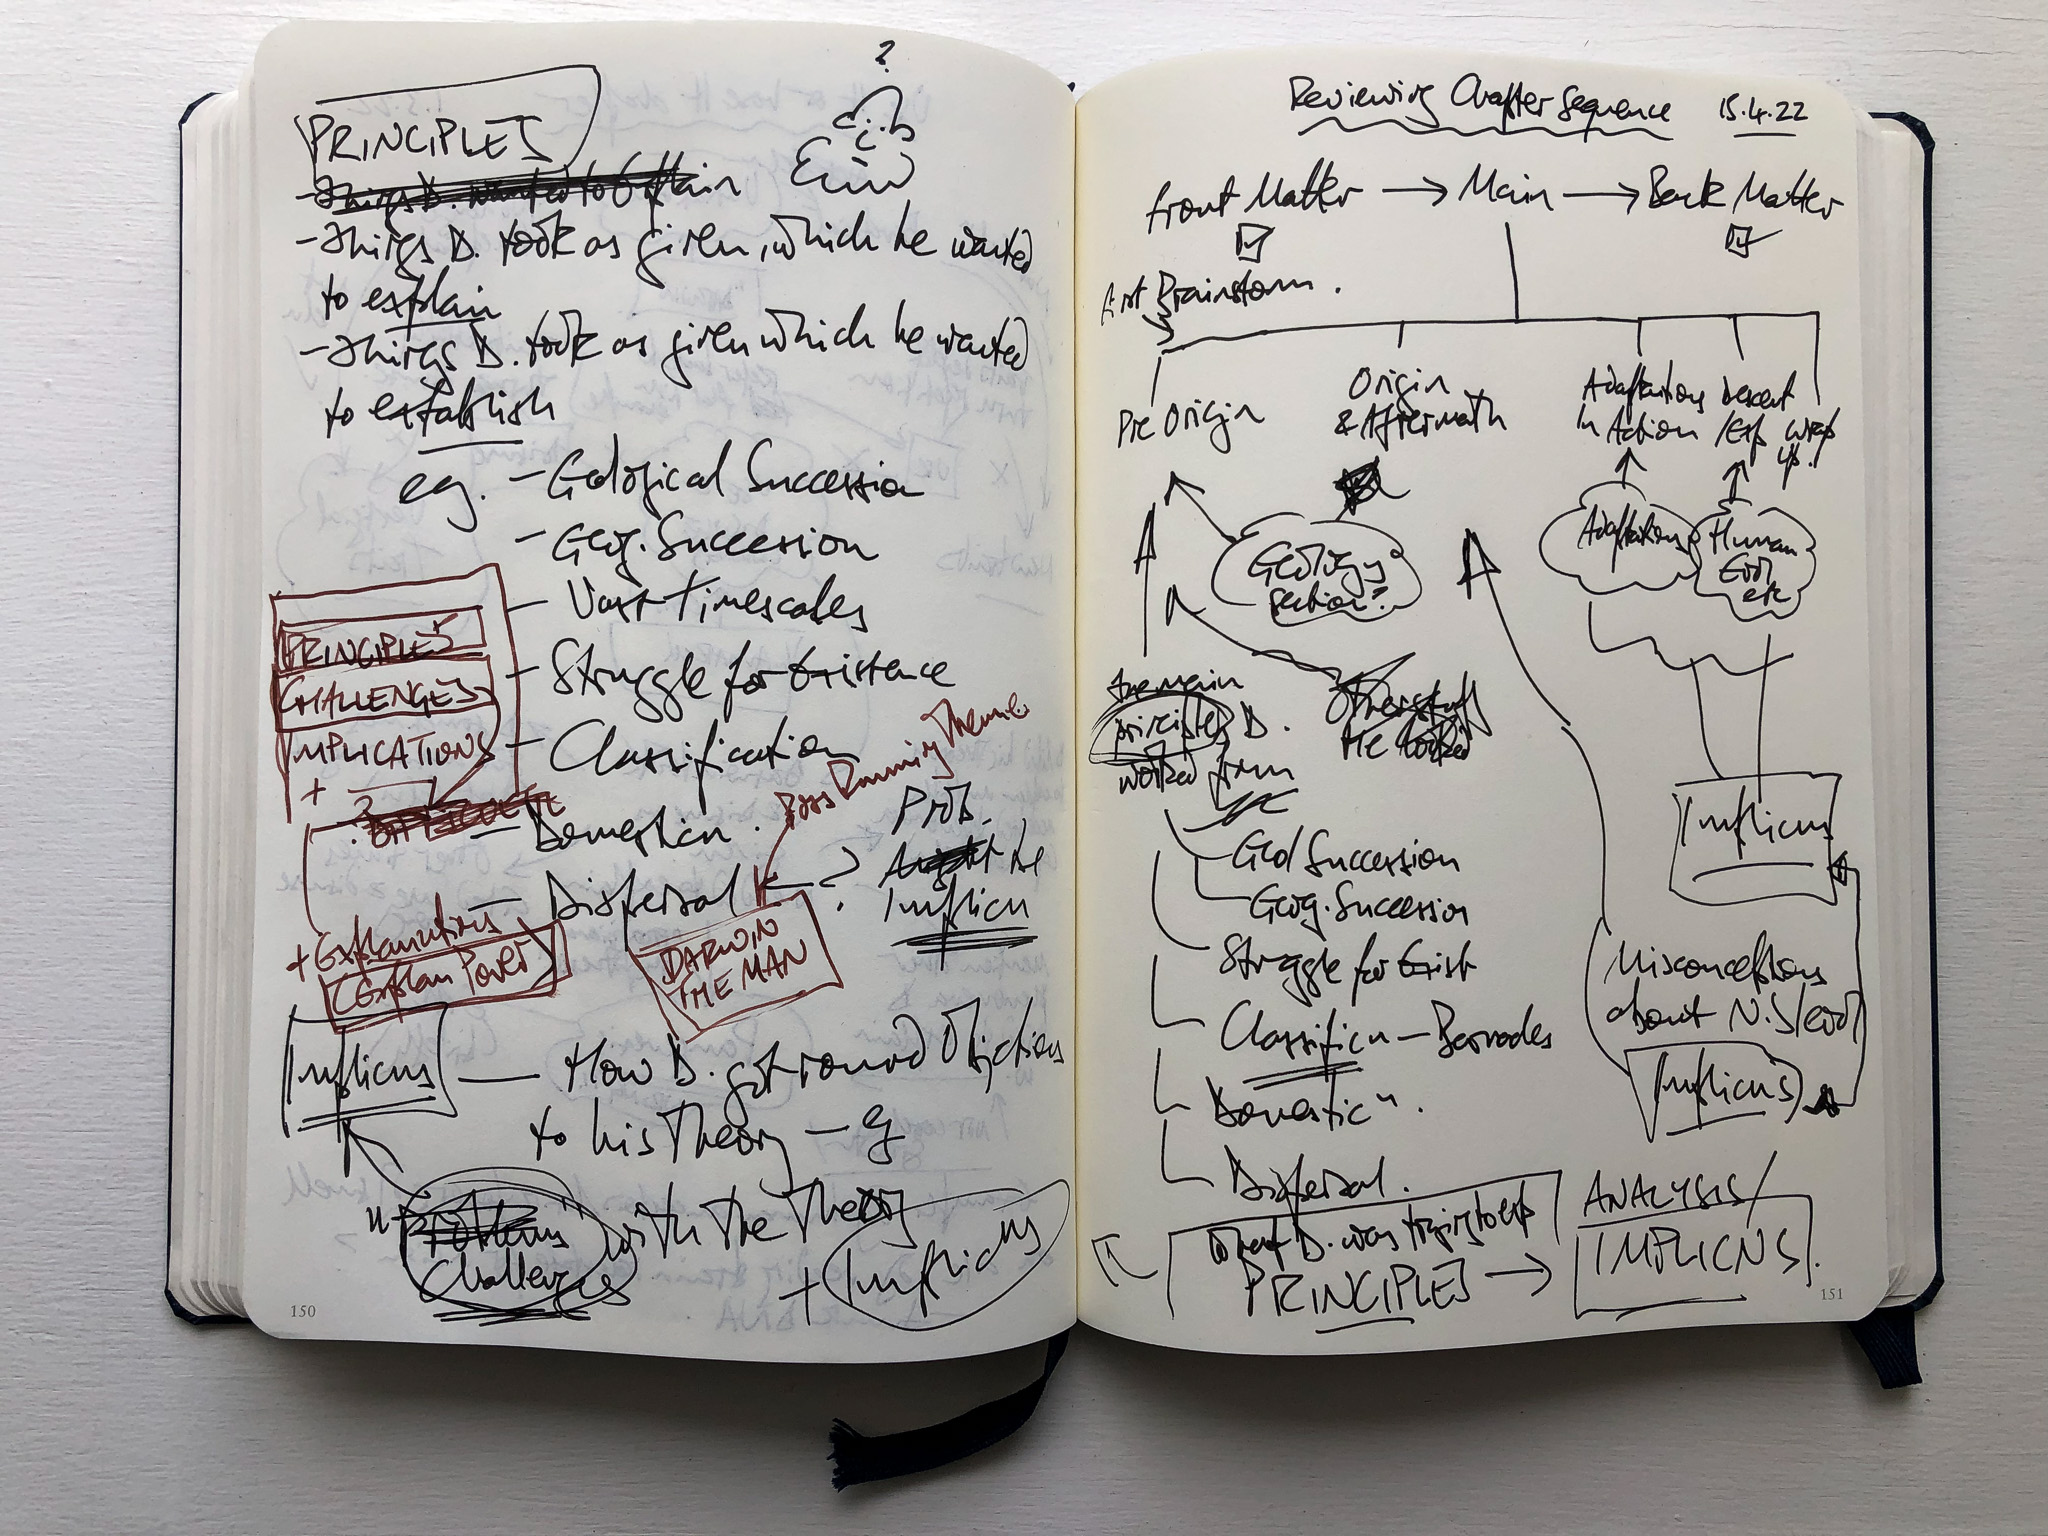 PRINCIPLES
?
- Things D. wanted to Explain
- Things D. took as given, which he wanted
to explain
- Things D. took as given which he wanted
to establish
eg. - Geological Succession
- Geog. Succession
- Vast timescales
- Struggle for Existence
- Classification
- Domesticn.
- Dispersal
?
Prob.
Might be
Implicn
PRINCIPLES
CHALLENGES
IMPLICATIONS
+
?
+ Explanations
(Explan Power)
Poss Running Theme
DARWIN
THE MAN
Implicns
- How D. got round Objections
to his Theory - eg
"Problems"
Challenges
with the Theory
+ Implicns
150
Reviewing Chapter Sequence 15.4.22
Front Matter → Main → Back Matter
Art Brainstorm.
Pre Origin
Origin
& Aftermath
Adaptations
In Action
Descent
/Exp
Wrap
up.
Geology
section?
Adaptations
Human
Evol
etc
The main
principles D.
worked from
Other stuff
He
- Geol Succession
- Geog. Succession
- Struggle for Exist
Classificn - Barnacles
Domesticn.
Dispersal.
Implicns
Misconceptions
about N.S/evol
Implicns
What D. was trying to exp
PRINCIPLES →
ANALYSIS/
IMPLICNS.
151